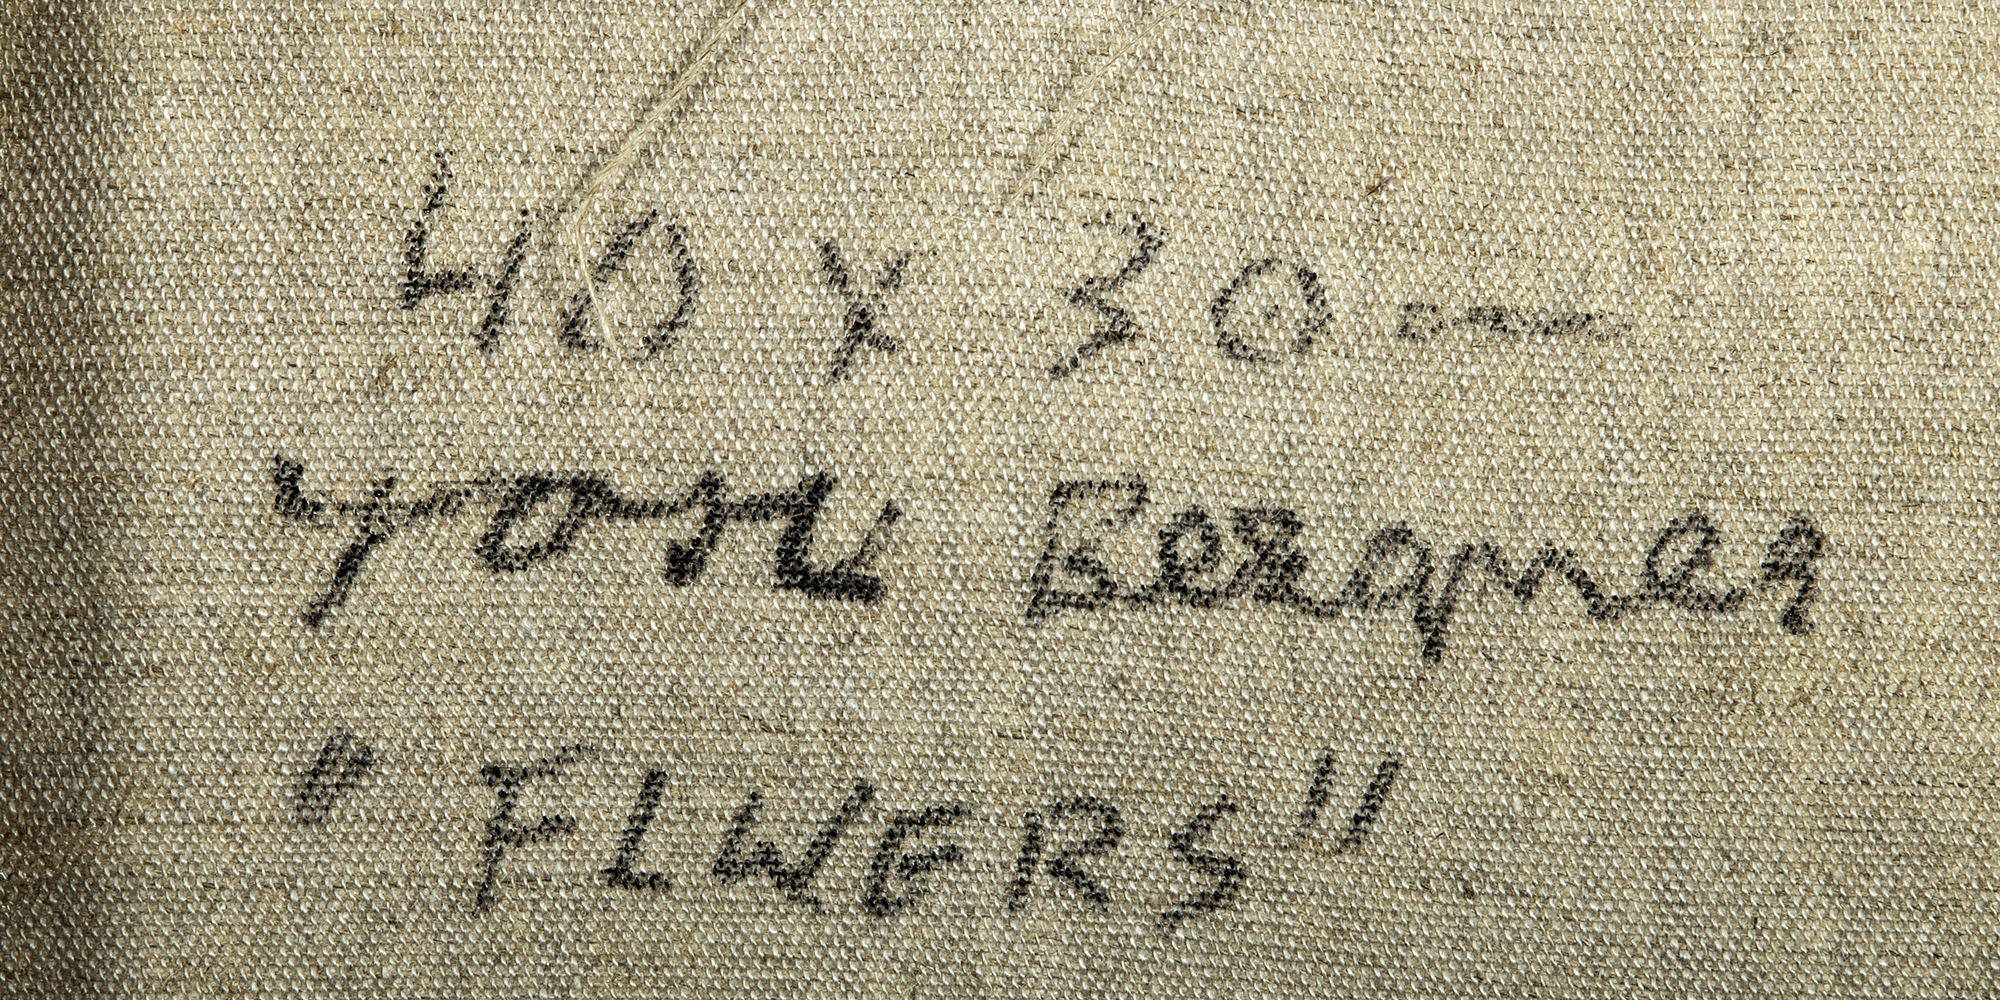 40 x 30 —
YOSL Bergner
"FLWERS"